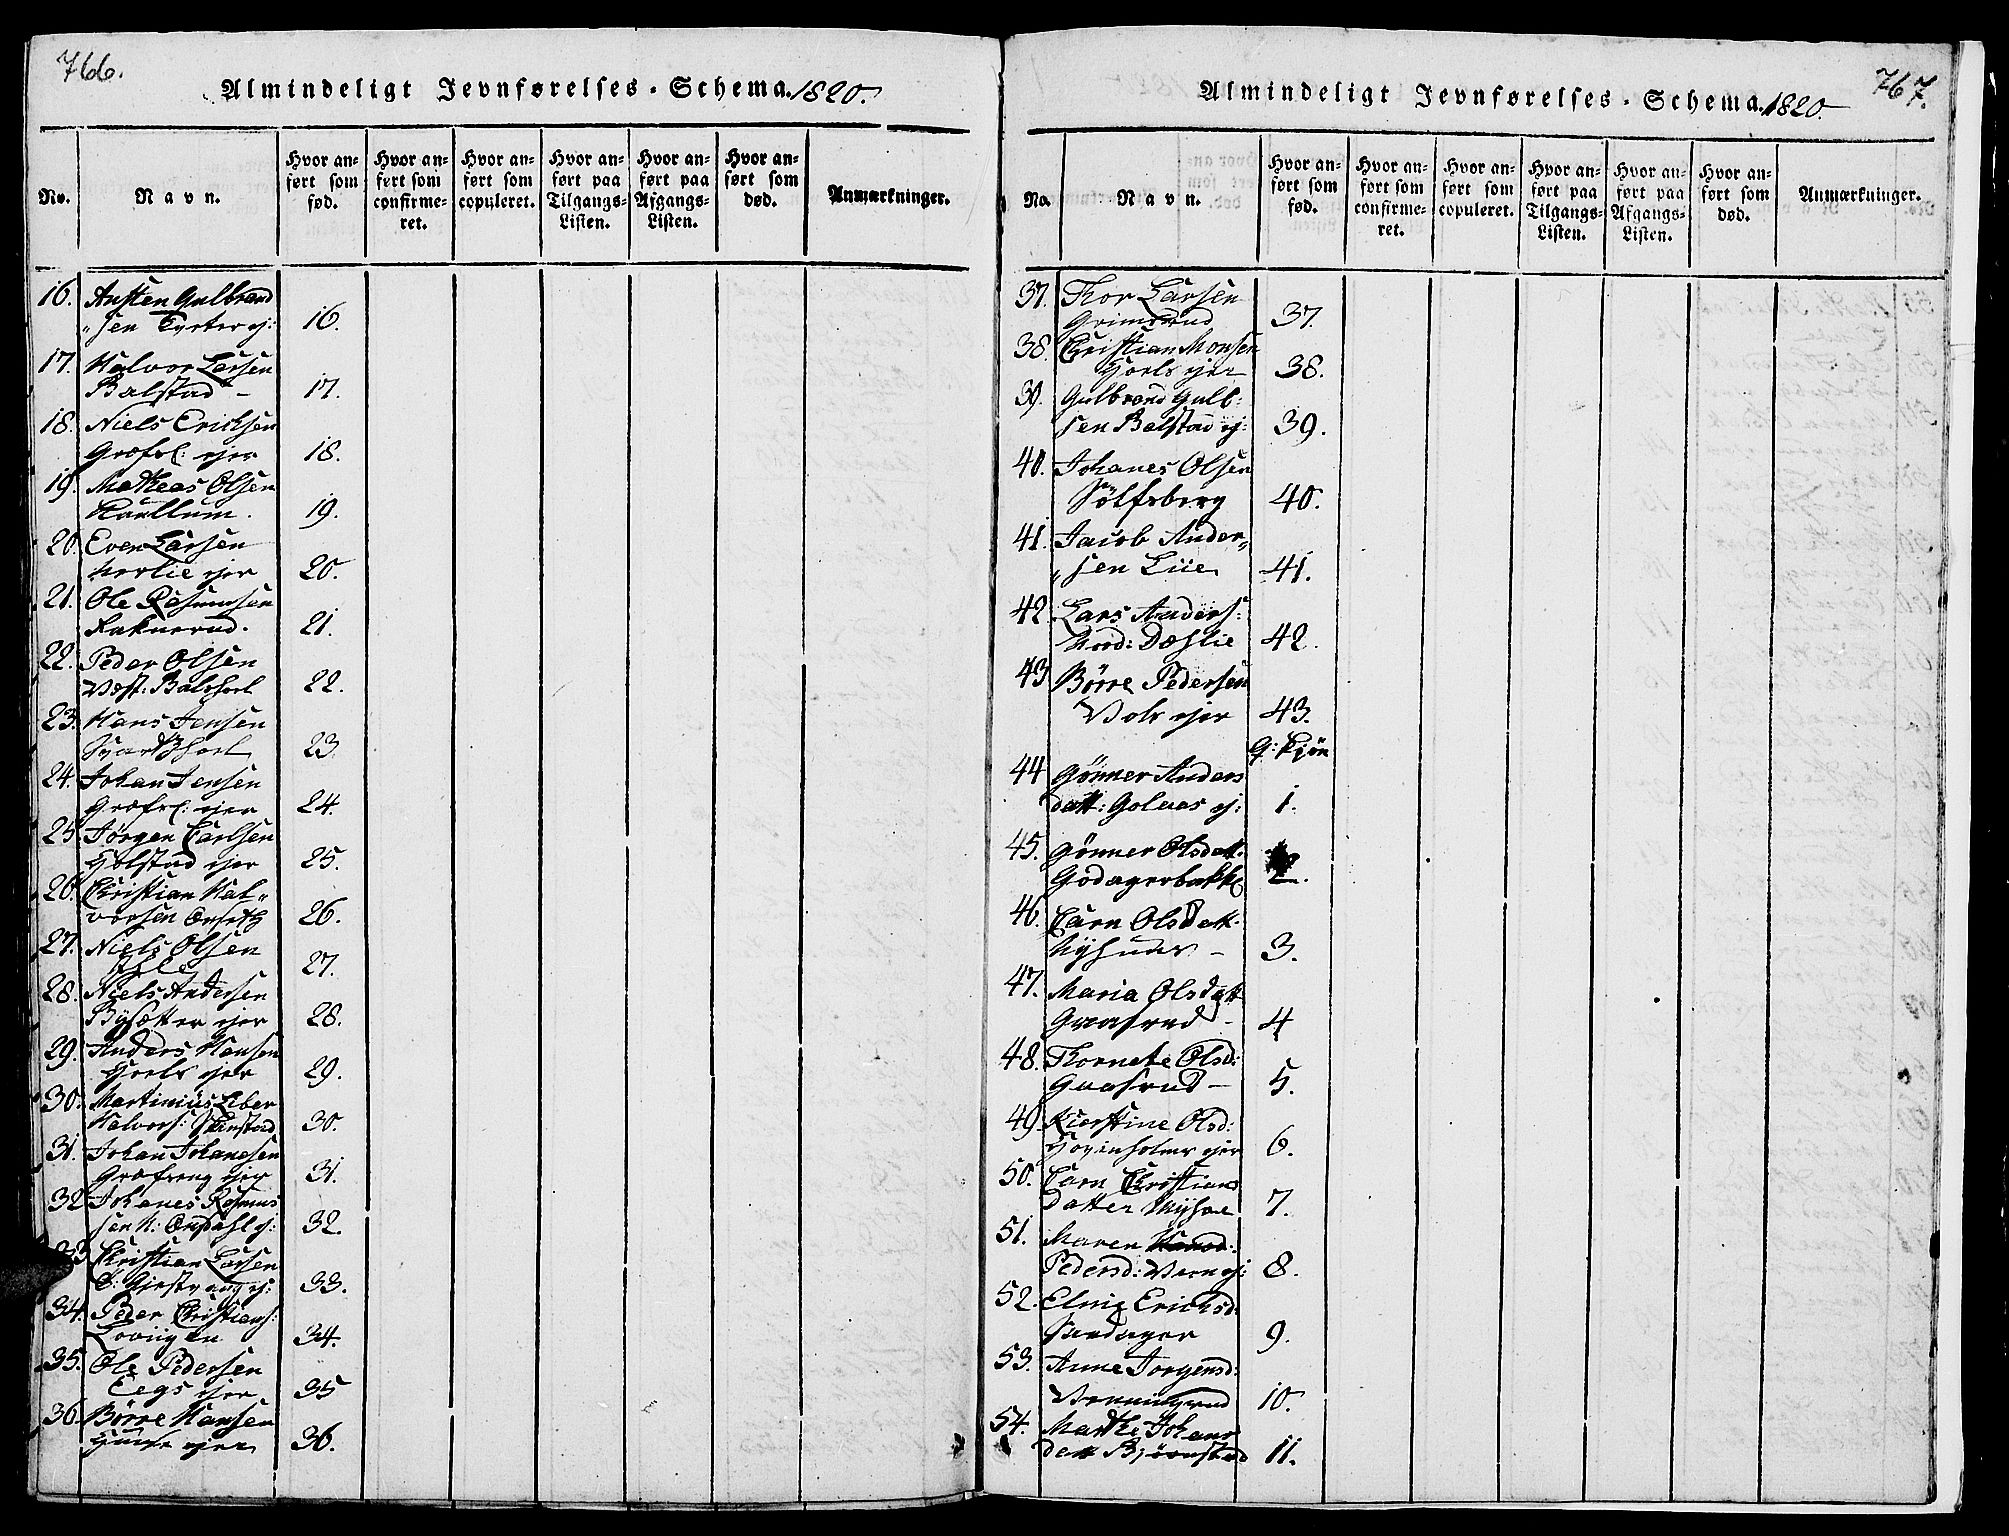 766.
Almindeligt Jevnførelses-Schema. 1820.
No.
Navn.
Hvor anført som fød.
Hvor anført som confirmeret.
Hvor anført som copuleret.
Hvor anført paa Tilgangs-Listen.
Hvor anført paa Afgangs-Listen.
Hvor anført som død.
Anmærkninger.
16. Austen Gulbrand
"sen ej: 16.
17. Halvor Larsen
Balstad - 17.
18. Niels Erichsen
Græfs: ejer 18.
19. Matheas Olsen
Kaellum. 19.
20. Even Larsen
Horlie ejer 20.
21. Ole Rasmusen
Raknerud. 21.
22. Peder Olsen
Vest: Balshoel 22.
23. Hans Jensen
Svartshoel 23
24. Johan Jensen
Græfs: ejer 24.
25. Jørgen Carlsen
Hølstad ejer 25.
26. Christian Hal"
vorsen Onseth 26.
27. Niels Olsen
27.
28. Niels Andersen
Bysætter ejer 28.
29. Anders Hansen
Hoels ejer 29.
30. Martinius Eber
Halvors: 30.
31. Johan Johanesen
Græfseng ejer 31.
32 Johanes Rasmus
sen N: Onsdahl ej: 32.
33 Christian Larsen
Gjestvang ej: 33.
34. Peder Christians:
34.
35. Ole Pedersen
Eegs ejer 35
36. Børre Hansen
ejer 36.
767.
Almindeligt Jevnførelses-Schema. 1820.
No.
Navn.
Hvor anført som fød.
Hvor anført som confirmeret.
Hvor anført som copuleret.
Hvor anført paa Tilgangs-Listen.
Hvor anført paa Afgangs-Listen.
Hvor anført som død.
Anmærkninger.
37. Thor Larsen
Grimsrud 37.
38. Christian Monsen
Hoels ejer 38.
39. Gulbrand Gulb:
sen Balstad ej: 39.
40. Johanes Olsen
Sølfsberg 40.
41. Jacob Ander"
"sen Liie 41.
42 Lars Anders:
Nord: Dæhlie 42.
43 Børre Pedersen
Vols ejer 43.
Q: Kjøn
44 Gønner Anders
datt: Golaas ej: 1.
45. Gønner Olsdatt:
Godagerbakk 2.
46. Carn Olsdatt:
Nyhuus - 3.
47. Maria Olsdatt
Gaasrud - 4
48. Thornete Olsd:
Gaasrud - 5.
49. Kierstine Olsd:
Hovinsholms ejer 6.
50. Carn Christians
datter Nyhue 7.
51. Maren
Pedersd: ej: 8.
52. Elnie Erichsd:
9.
53. Anne Jorgensd:
Venningrud 10.
54. Marthe Johans
datt Bjørnstad 11.